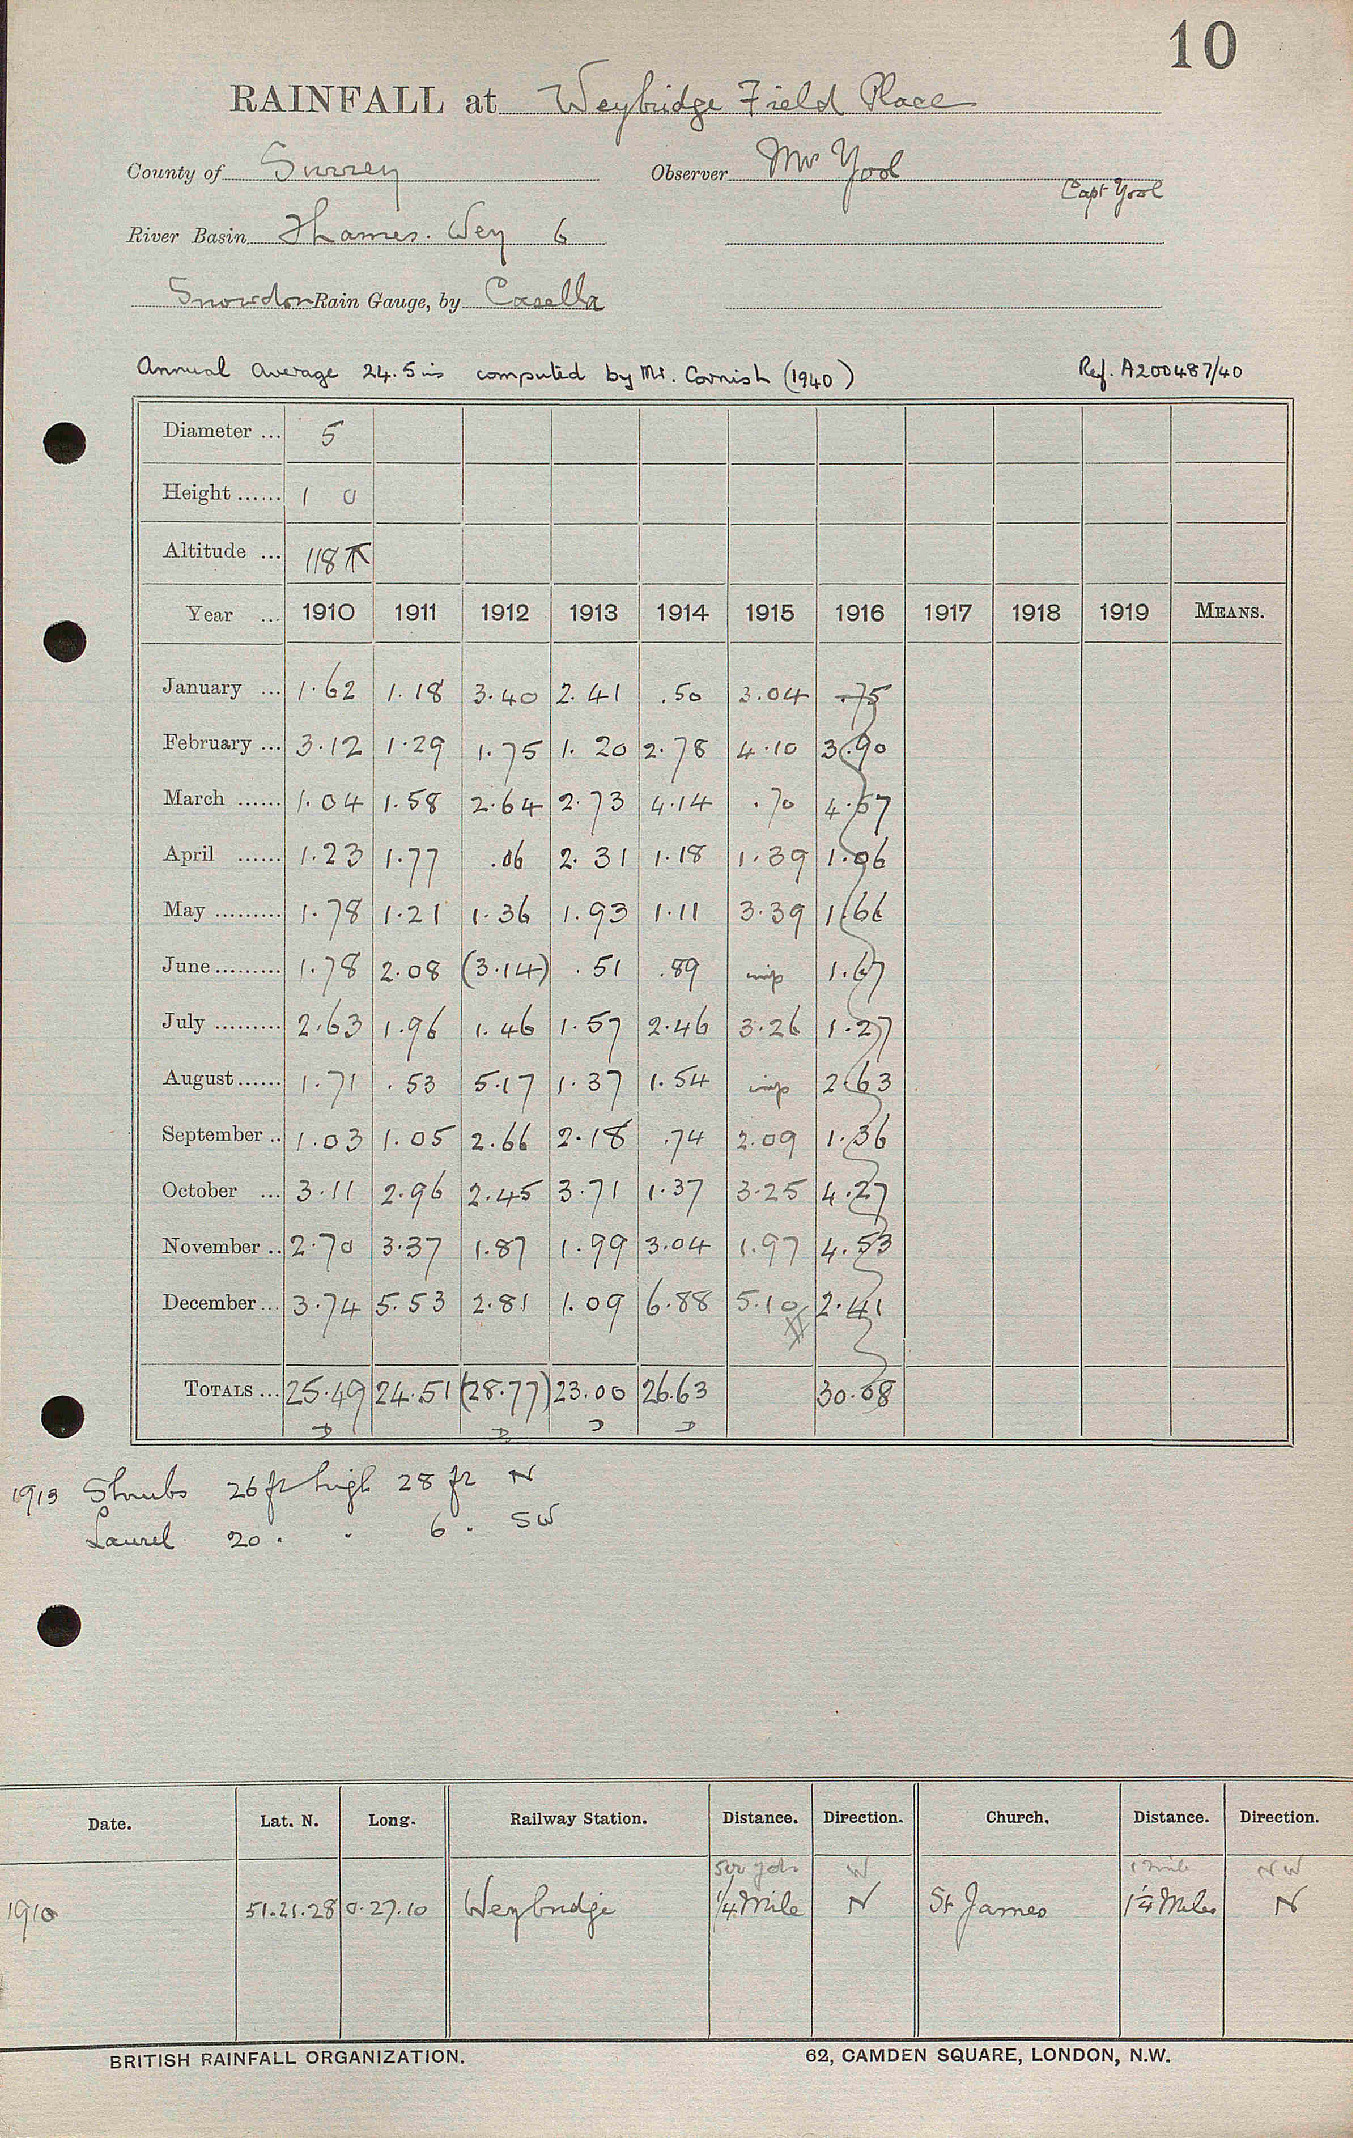 10
RAINFALL at Weybridge Field Place
County of Surrey Observer Mr Yool
Capt Yool
River Basin Thames. Wey 6
Snowdon Rain Gauge, by Casella
Annual average 24.5 ins computed by Mr. Cornish (1940) Ref. A200487/40
Diameter ... 5
Height ...... 1 0
Altitude ... 118
Year ... 1910 1911 1912 1913 1914 1915 1916 1917 1918 1919 MEANS.
January ... 1.62 1.18 3.40 2.41 .50 3.04 .75
February ... 3.12 1.29 1.75 1.20 2.78 4.10 3.90
March ...... 1.04 1.58 2.64 2.73 4.14 .70 4.57
April ...... 1.23 1.77 .06 2.31 1.18 1.39 1.06
May ......... 1.78 1.21 1.36 1.93 1.11 3.39 1.66
June ......... 1.78 2.08 (3.14) .51 .89 imp 1.67
July ......... 2.63 1.96 1.46 1.57 2.46 3.26 1.27
August ...... 1.71 .53 5.17 1.37 1.54 imp 2.63
September .. 1.03 1.05 2.66 2.18 .74 2.09 1.36
October ... 3.11 2.96 2.45 3.71 1.37 3.25 4.27
November .. 2.70 3.37 1.87 1.99 3.04 1.97 4.53
December ... 3.74 5.53 2.81 1.09 6.88 5.10 2.41
TOTALS ... 25.49 24.51 (28.77) 23.00 26.63 30.08
1913 Shrubs 26 ft high 28 ft N
Laurel 20 . . 6 . SW
Date. Lat. N. Long. Railway Station. Distance. Direction. Church. Distance. Direction.
500 yds W 1 mile NW
1910 51.21.28 0.27.10 Weybridge 1/4 Mile N St James 1 1/4 Miles N
BRITISH RAINFALL ORGANIZATION. 62, CAMDEN SQUARE, LONDON, N.W.